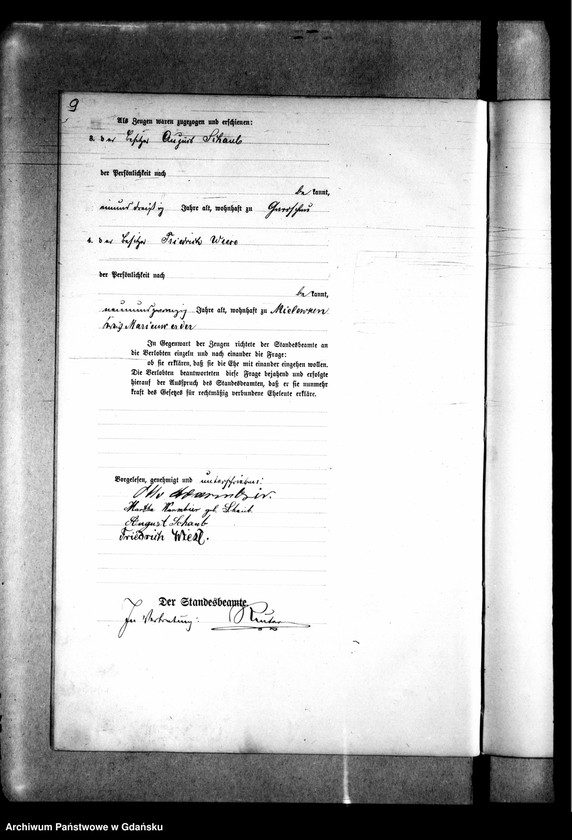 9
Als Zeugen waren zugezogen und erschienen:
3. der Besitzer August Schaub
der Persönlichkeit nach
bekannt,
einunddreißig Jahre alt, wohnhaft zu
4. der Besitzer Friedrich Wiese
der Persönlichkeit nach
bekannt,
neunundzwanzig Jahre alt, wohnhaft zu Mielewken
Kreis Marienwerder
In Gegenwart der Zeugen richtete der Standesbeamte an
die Verlobten einzeln und nach einander die Frage:
ob sie erklären, daß sie die Ehe mit einander eingehen wollen.
Die Verlobten beantworteten diese Frage bejahend und erfolgte
hierauf der Ausspruch des Standesbeamten, daß er sie nunmehr
kraft des Gesetzes für rechtmäßig verbundene Eheleute erkläre.
Vorgelesen, genehmigt und unterschrieben:
Otto Warmbier.
Martha Warmbier geb. Schaub
August Schaub
Friedrich Wiese.
Der Standesbeamte.
In Vertretung: Reuter
Archiwum Państwowe w Gdańsku